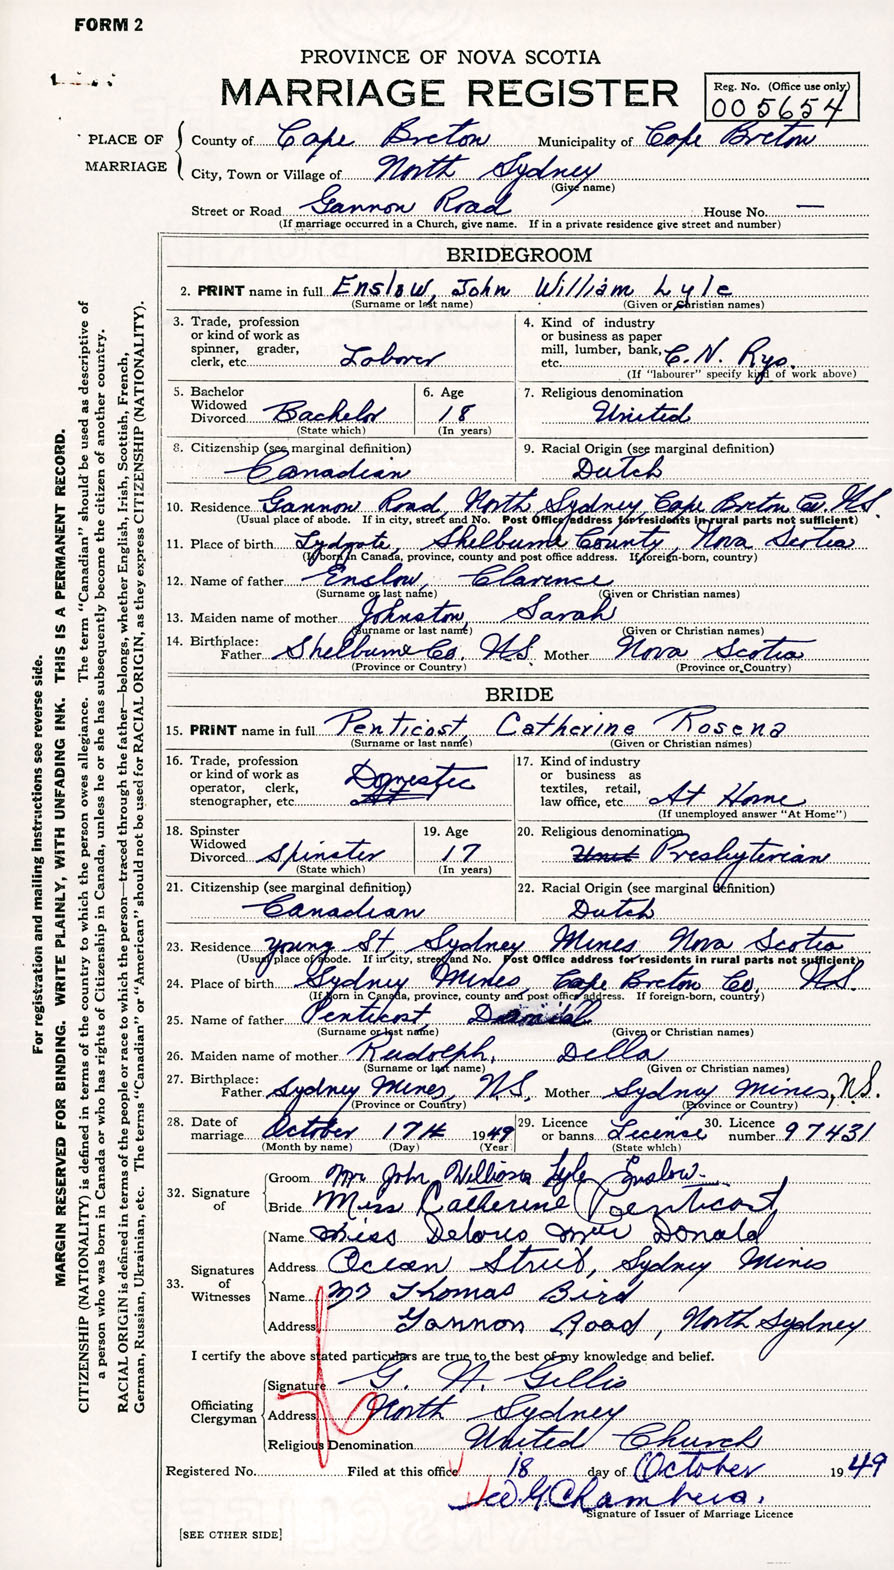 FORM 2
PROVINCE OF NOVA SCOTIA
MARRIAGE REGISTER
Reg. No. (Office use only)
005654
PLACE OF MARRIAGE
County of Cape Breton Municipality of Cape Breton
City, Town or Village of North Sydney
(Give name)
Street or Road Gannon Road House No. —
(If marriage occurred in a Church, give name. If in a private residence give street and number)
BRIDEGROOM
2. PRINT name in full Enslow, John William Lyle
(Surname or last name) (Given or Christian names)
3. Trade, profession or kind of work as spinner, grader, clerk, etc. Laborer
4. Kind of industry or business as paper mill, lumber, bank, etc. C. N. Rys.
(If "labourer" specify kind of work above)
5. Bachelor Widowed Divorced Bachelor
(State which)
6. Age 18
(In years)
7. Religious denomination United
8. Citizenship (see marginal definition) Canadian
9. Racial Origin (see marginal definition) Dutch
10. Residence Gannon Road, North Sydney Cape Breton Co. N.S.
(Usual place of abode. If in city, street and No. Post Office address for residents in rural parts not sufficient)
11. Place of birth Lydgate, Shelburne County, Nova Scotia
(If born in Canada, province, county and post office address. If foreign-born, country)
12. Name of father Enslow, Clarence
(Surname or last name) (Given or Christian names)
13. Maiden name of mother Johnston, Sarah
(Surname or last name) (Given or Christian names)
14. Birthplace: Father Shelburne Co. N.S. Mother Nova Scotia
(Province or Country) (Province or Country)
BRIDE
15. PRINT name in full Penticost, Catherine Rosena
(Surname or last name) (Given or Christian names)
16. Trade, profession or kind of work as operator, clerk, stenographer, etc. Domestic
17. Kind of industry or business as textiles, retail, law office, etc. At Home
(If unemployed answer "At Home")
18. Spinster Widowed Divorced Spinster
(State which)
19. Age 17
(In years)
20. Religious denomination Presbyterian
21. Citizenship (see marginal definition) Canadian
22. Racial Origin (see marginal definition) Dutch
23. Residence young St, Sydney Mines Nova Scotia
(Usual place of abode. If in city, street and No. Post Office address for residents in rural parts not sufficient)
24. Place of birth Sydney Mines, Cape Breton Co. N.S.
(If born in Canada, province, county and post office address. If foreign-born, country)
25. Name of father Penticost, Danial
(Surname or last name) (Given or Christian names)
26. Maiden name of mother Rudolph, Della
(Surname or last name) (Given or Christian names)
27. Birthplace: Father Sydney Mines, N.S. Mother Sydney Mines, N.S.
(Province or Country) (Province or Country)
28. Date of marriage October 17th 1949
(Month by name) (Day) (Year)
29. Licence or banns Licence
(State which)
30. Licence number 97431
32. Signature of
Groom Mr John William Lyle Enslow
Bride Miss Catherine Penticost
33. Signatures of Witnesses
Name Miss Delores Mac Donald
Address Ocean Street, Sydney Mines
Name Mr Thomas Bird
Address Gannon Road, North Sydney
I certify the above stated particulars are true to the best of my knowledge and belief.
Officiating Clergyman
Signature G. N. Gillis
Address North Sydney
Religious Denomination United Church
Registered No. Filed at this office 18 day of October 1949
W. G. Chambers.
Signature of Issuer of Marriage Licence
[SEE OTHER SIDE]
For registration and mailing instructions see reverse side.
MARGIN RESERVED FOR BINDING. WRITE PLAINLY, WITH UNFADING INK. THIS IS A PERMANENT RECORD.
CITIZENSHIP (NATIONALITY) is defined in terms of the country to which the person owes allegiance. The term "Canadian" should be used as descriptive of
a person who was born in Canada or who has rights of Citizenship in Canada, unless he or she has subsequently become the citizen of another country.
RACIAL ORIGIN is defined in terms of the people or race to which the person—traced through the father—belongs, whether English, Irish, Scottish, French,
German, Russian, Ukrainian, etc. The terms "Canadian" or "American" should not be used for RACIAL ORIGIN, as they express CITIZENSHIP (NATIONALITY).